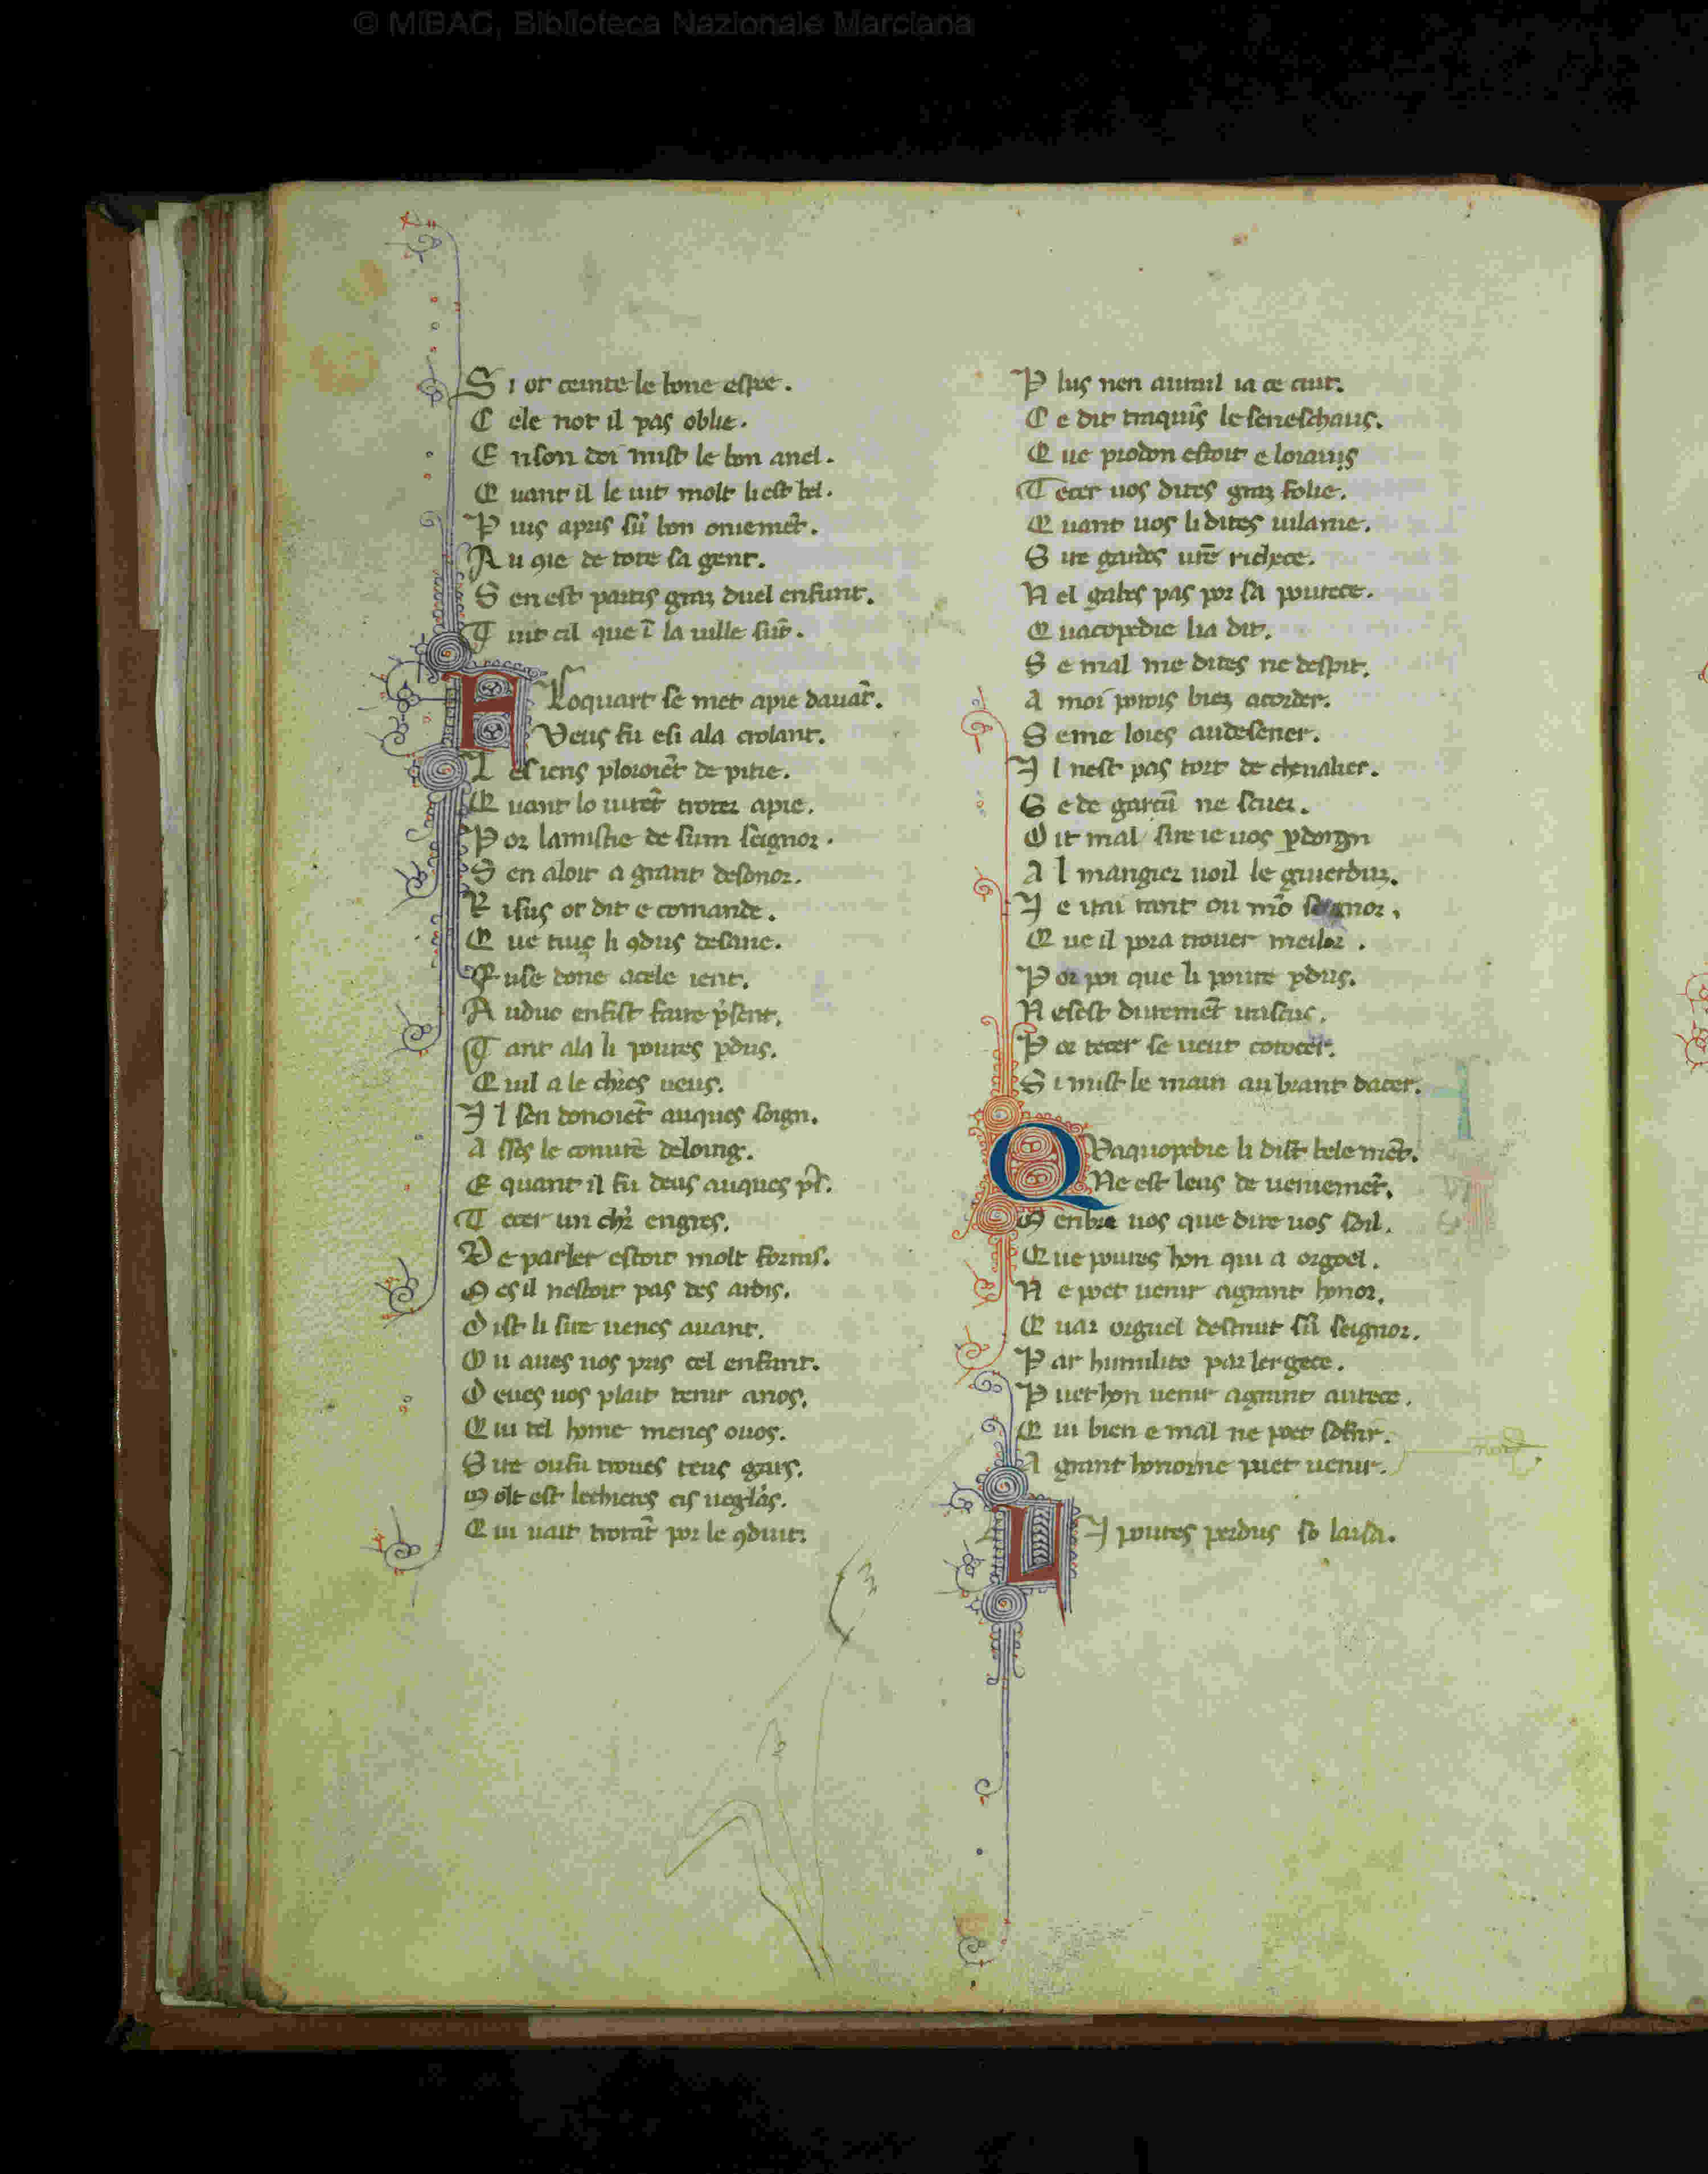 © MiBAC, Biblioteca Nazionale Marciana
S i or ceinte le bone espee.
C ele not il pas oblie.
E nson doi mist le bon anel.
Q uant il le uit molt li est bel.
P uis apris sũ bon oniemẽt.
A u 9ie de tote sa gent.
S en est partis graz duel enfunt.
T uit cil que ĩ la uille sũt.
A Loquart se met apie dauãt.
Veus fu esi ala crolant.
L es iens ploroiẽt de pitie.
Q uant lo uirẽt troter apie.
P or lamistie de sum seignor.
S en aloit a grant desonor.
R isus or dit e comande.
Q ue tuiç li 9dus desaue.
F use done acele ient.
A uduc enfist faire p̃sent.
T ant ala li poures pdus.
Q uil a le chr̃es ueus.
I l sen donoiẽt auques soign.
A sses le conurẽ deloing.
E quant il fu deus auques p̃s.
T ecer un chr̃ engres.
D e parler estoit molt forniſ.
M es il nestoit pas des ardis.
D ist li sire uenes auant.
O u aues uos pris cel enfant.
D eues uos plait tenir anos.
Q ui tel home menes ouos.
S ire oufu troues teus gars.
M olt est lechieres cis uegl̃as.
Q ui uait trotãt por le 9duit.
P lus nen auraul ia ce cuit.
C e dit traquĩs le seneschaus.
Q ue prodon estoit e loiaus
T ecer uos dites graz folie.
Q uant uos li dites uilanie.
S ire gardes ur̃e richece.
N el gabes pas por sa pourete.
Q uacopedie lia dit.
S e mal me dites ne despit.
A moi porois biez acorder.
S eme loies audesener.
I l nest pas tort de cheualier.
S e de garcũ ne seuer.
D it mal sire ie uos pdoign
A l mangier uoil le guierduz.
I e irai tant ou mõ seignor.
Q ue il pora trouer meilor.
P or poi que li poure pdus.
N esest duremẽt irascus.
P or tecer se ueut corocer.
S i mist le main au brant dacer.
Q Vaquopedie li dist bele mẽt.
Ne est leus de ueniemẽt.
M enbre uos que dire uos soil.
Q ue poures hon qui a orgoel.
N e poet uenir agrant honor.
Q uar orguel destruit sũ seignor.
P ar humilite par lergece.
P uet hon uenir agrant autece.
Q ui bien e mal ne poet sofrir.
A grant honorne puet uenir.
L I poures perdus so laisa.